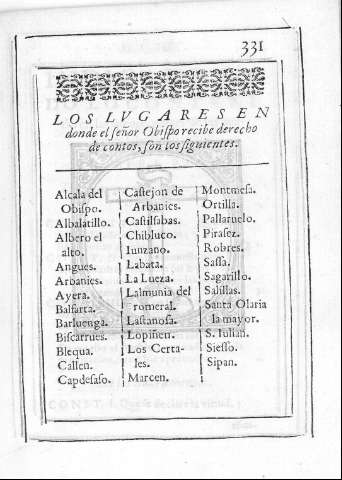 331
LOS LVGARES EN
donde el señor Obispo recibe derecho
de contos, son los siguientes.
Alcala del
Obispo.
Albalatillo.
Albero el
alto.
Angues.
Arbanies.
Ayera.
Balfarta.
Barluenga.
Biscarrues.
Blequa.
Callen.
Capdesaso.
Castejon de
Arbanies.
Castilsabas.
Chibluco.
Iunzano.
Labata.
La Lueza.
Lalmunia del
romeral.
Lastanosa.
Lopiñen.
Los Certa-
les.
Marcen.
Montmesa.
Ortilla.
Pallaruelo.
Pirasez.
Robres.
Sassa.
Sagarillo.
Salillas.
Santa Olaria
la mayor.
S. Iulian.
Siesso.
Sipan.